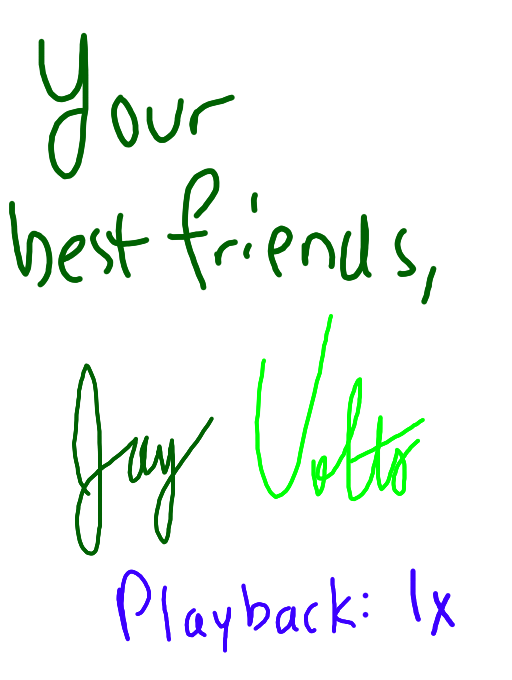 Your
best friends,
Jay Volto
Playback: 1x